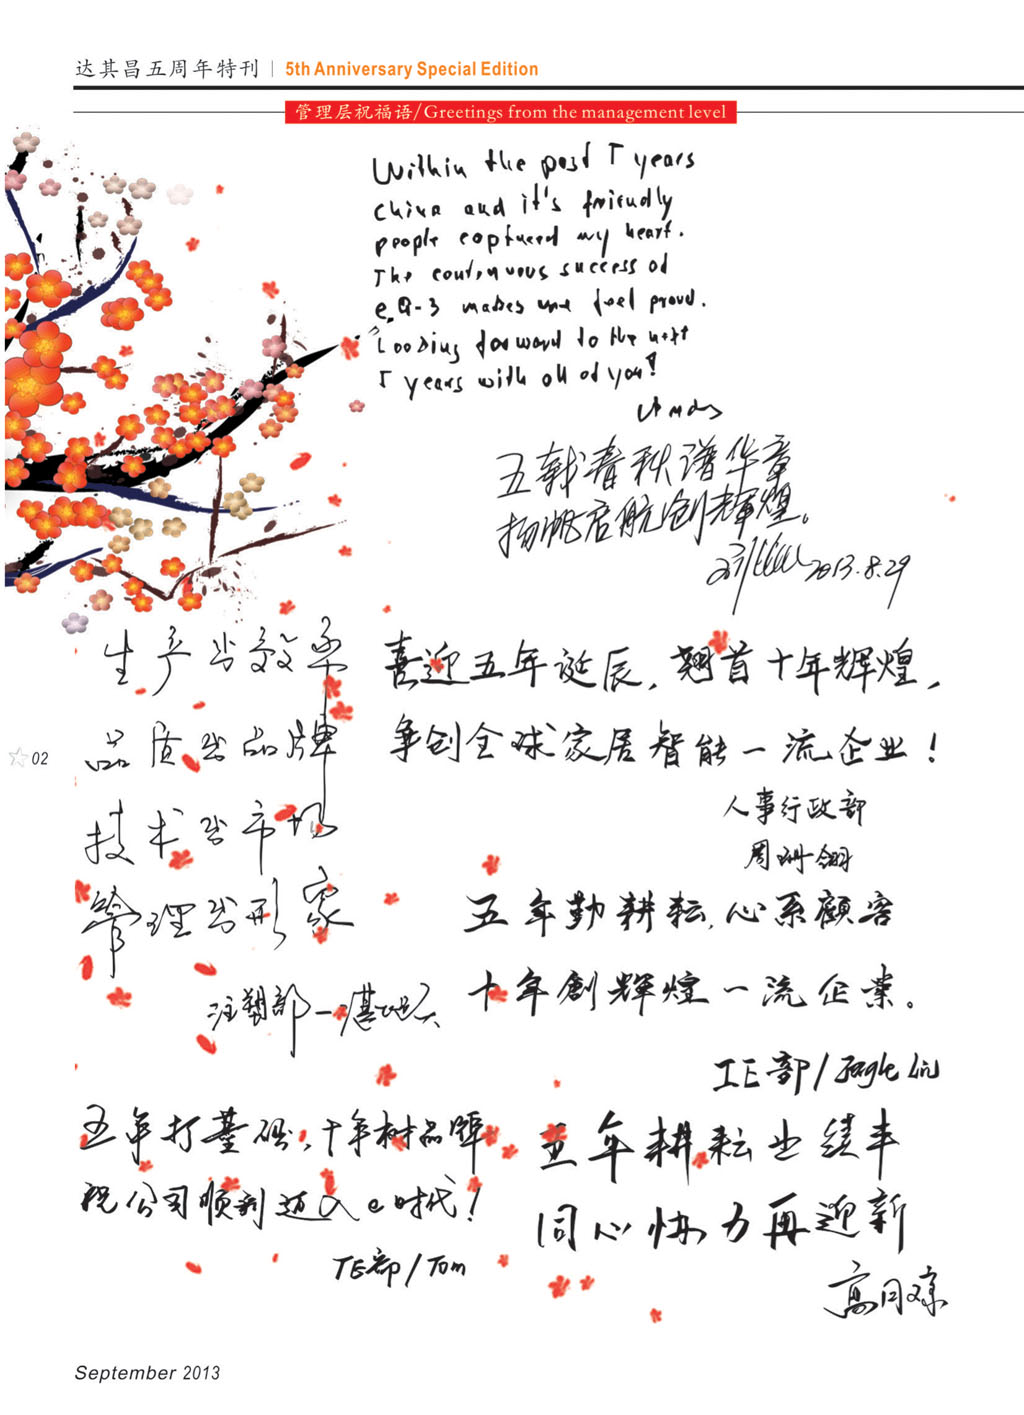 达其昌五周年特刊 | 5th Anniversary Special Edition
管理层祝福语/Greetings from the management level
Within the past 5 years
China and it's friendly
people captured my heart.
The continuous success of
e.Q-3 makes me feel proud.
Looking forward to the next
5 years with all of you!
五载春秋谱华章
扬帆启航创辉煌。
2013.8.29
生产出效率
品质出品牌
技术出市场
管理出形象
注塑部－湛
喜迎五年诞辰，翘首十年辉煌，
争创全球家居智能一流企业！
人事行政部
周珊翎
五年勤耕耘,心系顧客
十年創輝煌一流企業。
IE部/
五年打基础，十年树品牌
祝公司顺利迈入e时代！
TE部/Tom
五年耕耘出绩丰
同心协力再迎新
02
September 2013